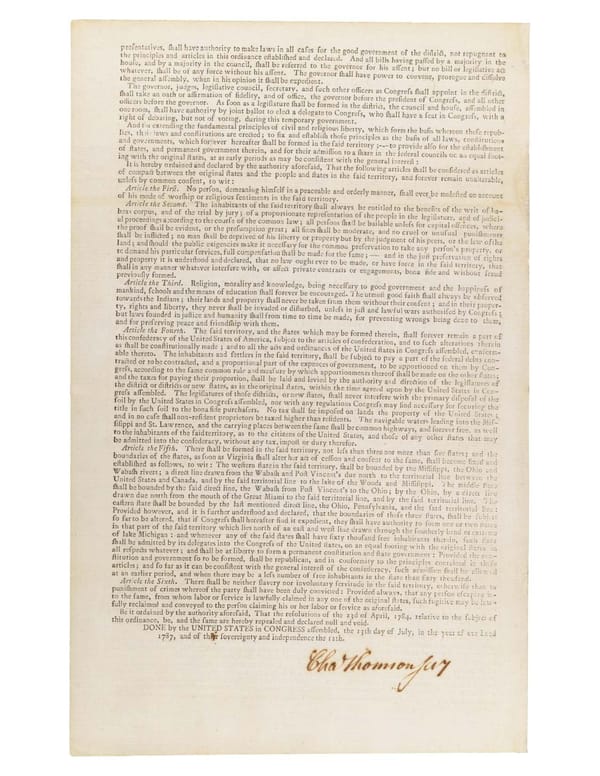 presentatives, shall have authority to make laws in all cases for the good government of the district, not repugnant to
the principles and articles in this ordinance established and declared. And all bills having passed by a majority in the
house, and by a majority in the council, shall be referred to the governor for his assent; but no bill or legislative act
whatever, shall be of any force without his assent. The governor shall have power to convene, prorogue and dissolve
the general assembly, when in his opinion it shall be expedient.
The governor, judges, legislative council, secretary, and such other officers as Congress shall appoint in the district,
shall take an oath or affirmation of fidelity, and of office, the governor before the president of Congress, and all other
officers before the governor. As soon as a legislature shall be formed in the district, the council and house, assembled in
one room, shall have authority by joint ballot to elect a delegate to Congress, who shall have a seat in Congress, with a
right of debating, but not of voting, during this temporary government.
And for extending the fundamental principles of civil and religious liberty, which form the basis whereon these repub-
lics, their laws and constitutions are erected; to fix and establish those principles as the basis of all laws, constitutions
and governments, which forever hereafter shall be formed in the said territory;—to provide also for the establishment
of states, and permanent government therein, and for their admission to a share in the federal councils on an equal foot-
ing with the original states, at as early periods as may be consistent with the general interest:
It is hereby ordained and declared by the authority aforesaid, That the following articles shall be considered as articles
of compact between the original states and the people and states in the said territory, and forever remain unalterable,
unless by common consent, to wit:
Article the First. No person, demeaning himself in a peaceable and orderly manner, shall ever be molested on account
of his mode of worship or religious sentiments in the said territory.
Article the Second. The inhabitants of the said territory shall always be entitled to the benefits of the writ of ha-
beas corpus, and of the trial by jury; of a proportionate representation of the people in the legislature, and of judici-
al proceedings according to the course of the common law; all persons shall be bailable unless for capital offences, where
the proof shall be evident, or the presumption great; all fines shall be moderate, and no cruel or unusual punishments
shall be inflicted; no man shall be deprived of his liberty or property but by the judgment of his peers, or the law of the
land; and should the public exigencies make it necessary for the common preservation to take any person's property, or
to demand his particular services, full compensation shall be made for the same;—and in the just preservation of rights
and property it is understood and declared, that no law ought ever to be made, or have force in the said territory, that
shall in any manner whatever interfere with, or affect private contracts or engagements, bona fide and without fraud
previously formed.
Article the Third. Religion, morality and knowledge, being necessary to good government and the happiness of
mankind, schools and the means of education shall forever be encouraged. The utmost good faith shall always be observed
towards the Indians; their lands and property shall never be taken from them without their consent; and in their proper-
ty, rights and liberty, they never shall be invaded or disturbed, unless in just and lawful wars authorised by Congress;
but laws founded in justice and humanity shall from time to time be made, for preventing wrongs being done to them,
and for preserving peace and friendship with them.
Article the Fourth. The said territory, and the states which may be formed therein, shall forever remain a part of
this confederacy of the United States of America, subject to the articles of confederation, and to such alterations therein
as shall be constitutionally made; and to all the acts and ordinances of the United States in Congress assembled, conform-
able thereto. The inhabitants and settlers in the said territory, shall be subject to pay a part of the federal debts con-
tracted or to be contracted, and a proportional part of the expences of government, to be apportioned on them by Con-
gress, according to the same common rule and measure by which apportionments thereof shall be made on the other states;
and the taxes for paying their proportion, shall be laid and levied by the authority and direction of the legislatures of
the district or districts or new states, as in the original states, within the time agreed upon by the United States in Con-
gress assembled. The legislatures of those districts, or new states, shall never interfere with the primary disposal of the
soil by the United States in Congress assembled, nor with any regulations Congress may find necessary for securing the
title in such soil to the bona fide purchasers. No tax shall be imposed on lands the property of the United States;
and in no case shall non-resident proprietors be taxed higher than residents. The navigable waters leading into the Missi-
sippi and St. Lawrence, and the carrying places between the same shall be common highways, and forever free, as well
to the inhabitants of the said territory, as to the citizens of the United States, and those of any other states that may
be admitted into the confederacy, without any tax, impost or duty therefor.
Article the Fifth. There shall be formed in the said territory, not less than three nor more than five states; and the
boundaries of the states, as soon as Virginia shall alter her act of cession and consent to the same, shall become fixed and
established as follows, to wit: The western state in the said territory, shall be bounded by the Missisippi, the Ohio and
Wabash rivers; a direct line drawn from the Wabash and Post Vincent's due north to the territorial line between the
United States and Canada, and by the said territorial line to the lake of the Woods and Missisippi. The middle state
shall be bounded by the said direct line, the Wabash from Post Vincent's to the Ohio; by the Ohio, by a direct line
drawn due north from the mouth of the Great Miami to the said territorial line, and by the said territorial line. The
eastern state shall be bounded by the last mentioned direct line, the Ohio, Pennsylvania, and the said territorial line:
Provided however, and it is further understood and declared, that the boundaries of these three states, shall be subject
so far to be altered, that if Congress shall hereafter find it expedient, they shall have authority to form one or two states
in that part of the said territory which lies north of an east and west line drawn through the southerly bend or extreme
of lake Michigan: and whenever any of the said states shall have sixty thousand free inhabitants therein, such state
shall be admitted by its delegates into the Congress of the United States, on an equal footing with the original states in
all respects whatever; and shall be at liberty to form a permanent constitution and state government: Provided the con-
stitution and government so to be formed, shall be republican, and in conformity to the principles contained in these
articles; and so far as it can be consistent with the general interest of the confederacy, such admission shall be allowed
at an earlier period, and when there may be a less number of free inhabitants in the state than sixty thousand.
Article the Sixth. There shall be neither slavery nor involuntary servitude in the said territory, otherwise than in
punishment of crimes whereof the party shall have been duly convicted: Provided always, that any person escaping in-
to the same, from whom labor or service is lawfully claimed in any one of the original states, such fugitive may be law-
fully reclaimed and conveyed to the person claiming his or her labor or service as aforesaid.
Be it ordained by the authority aforesaid, That the resolutions of the 23d of April, 1784, relative to the subject of
this ordinance, be, and the same are hereby repealed and declared null and void.
DONE by the UNITED STATES in CONGRESS assembled, the 13th day of July, in the year of our Lord
1787, and of their sovereignty and independence the 12th.
Chas Thomson secy